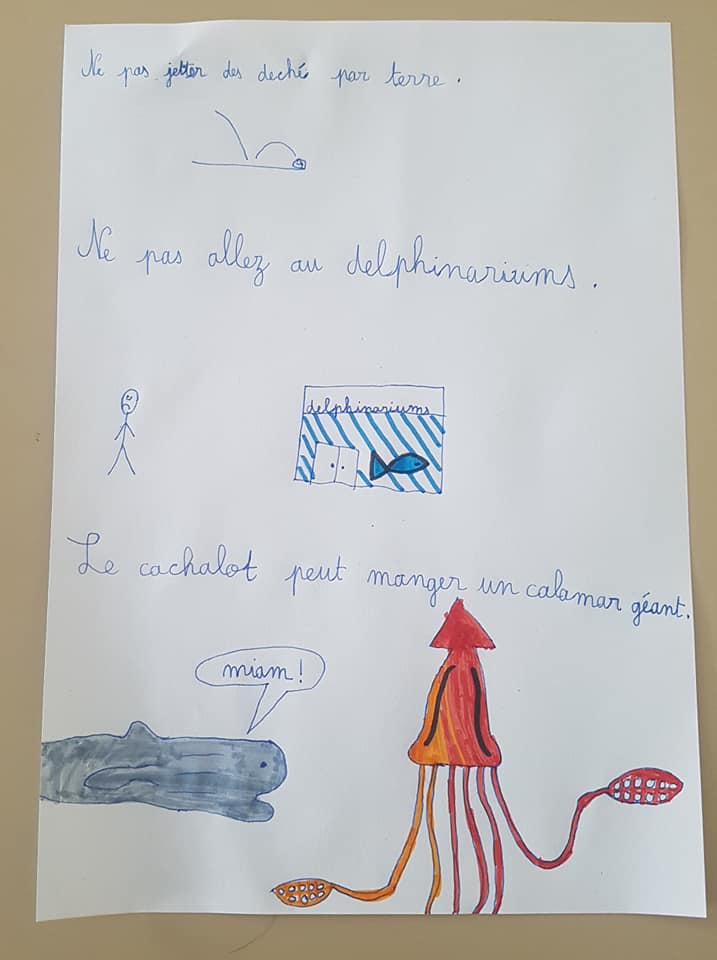 Ne pas jetter des deché par terre.
Ne pas allez au delphinariums.
delphinariums
Le cachalot peut manger un calamar géant.
miam !